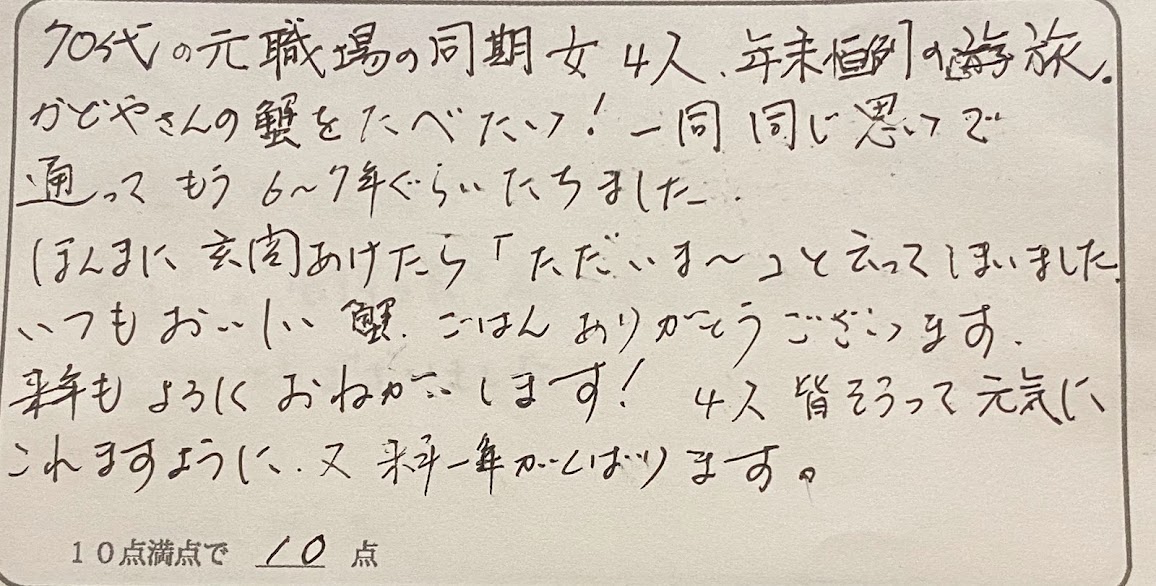 70代の元職場の同期女4人、年末恒例の遊旅.
かどやさんの蟹をたべたい!一同 同じ思いで
通って もう 6～7年ぐらいたちました.
ほんまに 玄関あけたら「ただいま～」と云ってしまいました.
いつも おいしい 蟹. ごはん ありがとうございます.
来年も よろしく おねがいします! 4人 皆そろって 元気に
これますように. 又 来年一年がんばります。
10点満点で 10 点